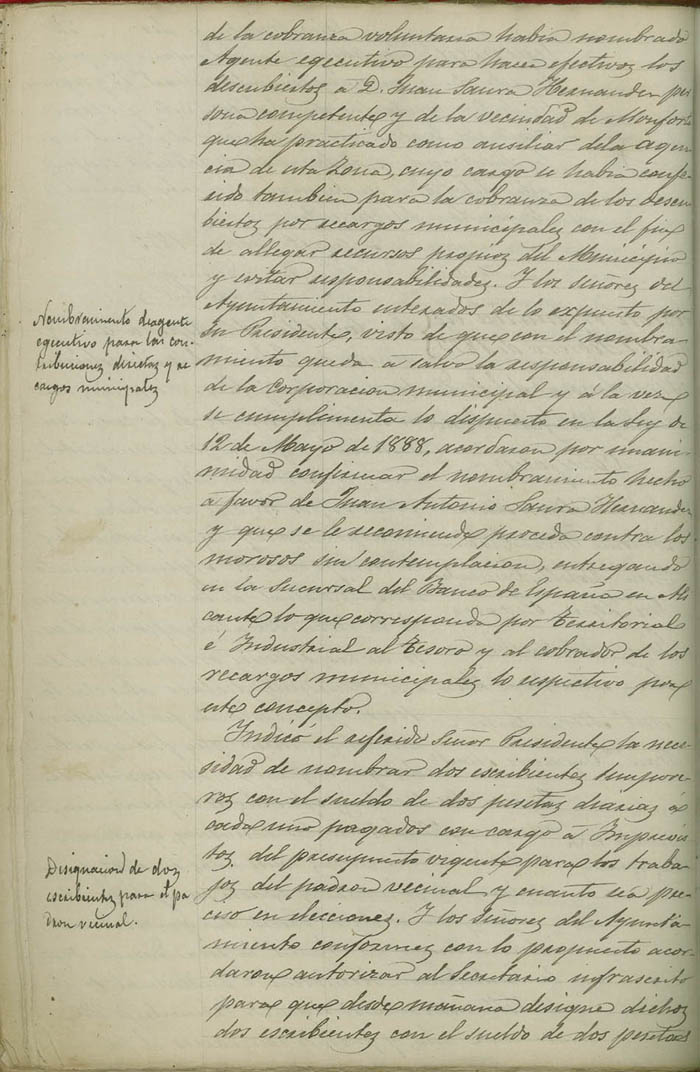 de la cobranza voluntaria habia nombrado
Agente egecutivo para hacer efectivos los
descubiertos á D. Juan Saura Hernandez per
sona competente y de la vecindad de Monforte
que ha practicado como auxiliar de la agen
cia de esta Zona, cuyo cargo se habia confe-
rido tambien para la cobranza de los descu
biertos por recargos municipales con el fin
de allegar recursos propios del Municipio
y evitar responsabilidades. Y los señores del
Ayuntamiento enterados de lo expuesto por
Nombramiento de agente
egecutivo para las con-
tribuciones directas y re
cargos municipales
Sr. Presidente, visto de que con el nombra-
miento queda á salvo la responsabilidad
de la Corporacion municipal y á la vez
se cumplimenta lo dispuesto en la Ley de
12 de Mayo de 1888, acordaron por unani-
midad confirmar el nombramiento hecho
á favor de Juan Antonio Saura Hernandez
y que se le recomiende proceda contra los
morosos sin contemplacion, entregando
en la Sucursal del Banco de España en Ali
cante lo que corresponda por Territorial
é Industrial al Tesoro y al cobrador de los
recargos municipales lo respectivo por
este concepto.
Indicó el referido Señor Presidente la nece-
sidad de nombrar dos escribientes tempore-
ros con el sueldo de dos pesetas diarias á
cada uno pagados con cargo á Imprevis
tos del presupuesto vigente para los traba-
jos del padron vecinal y cuanto sea pre-
ciso en elecciones. Y los Señores del Ayunta-
Designacion de dos
escribientes para el pa
dron vecinal.
miento conformes con lo propuesto acor-
daron autorizar al Secretario infrascrito
para que desde mañana designe dichos
dos escribientes con el sueldo de dos pesetas